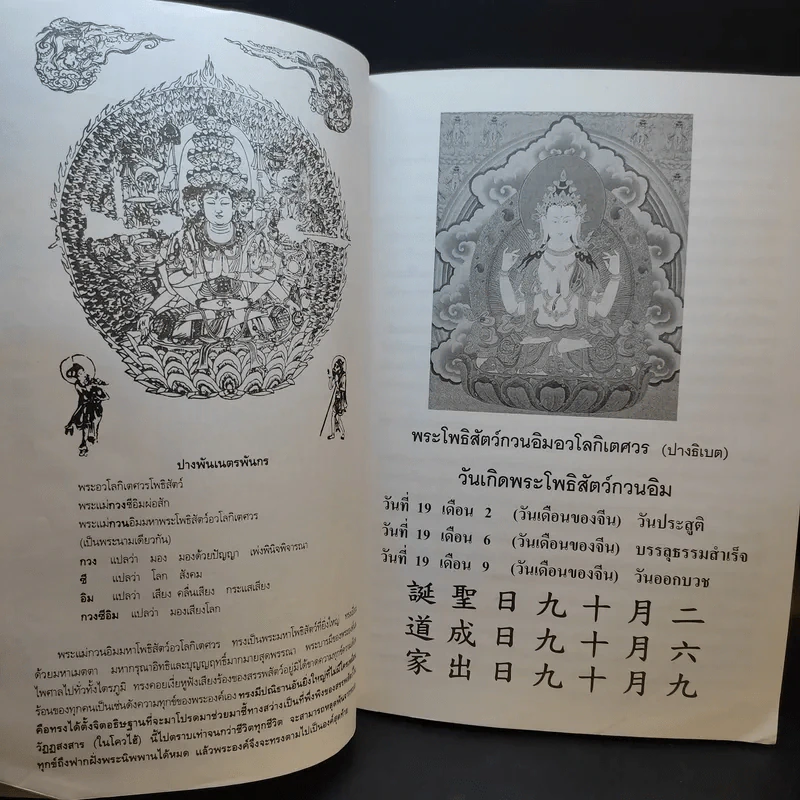 ปางพันเนตรพันกร
พระอวโลกิเตศวรโพธิสัตว์
พระแม่กวงซีอิมผ่อสัก
พระแม่กวนอิมมหาพระโพธิสัตว์อวโลกิเตศวร
(เป็นพระนามเดียวกัน)
กวง แปลว่า มอง มองด้วยปัญญา เพ่งพินิจพิจารณา
ซี แปลว่า โลก สังคม
อิม แปลว่า เสียง คลื่นเสียง กระแสเสียง
กวงซีอิม แปลว่า มองเสียงโลก
พระแม่กวนอิมมหาโพธิสัตว์อวโลกิเตศวร ทรงเป็นพระมหาโพธิสัตว์ที่ยิ่งใหญ่
ด้วยมหาเมตตา มหากรุณาอิทธิและบุญญฤทธิ์มากมายสุดพรรณา พระบารมีของพระองค์
ไพศาลไปทั่วทั้งไตรภูมิ ทรงคอยเงี่ยหูฟังเสียงร้องของสรรพสัตว์อยู่มิได้ขาดความทุกข์
ร้อนของทุกคนเป็นเช่นดังความทุกข์ของพระองค์เอง ทรงมีปณิธานอันยิ่งใหญ่ที่ไม่มีใคร
คือทรงได้ตั้งจิตอธิษฐานที่จะมาโปรดมาช่วยมาชี้ทางสว่างเป็นที่พึ่งพิงของสรรพสัตว์
วัฏฏสงสาร (ในโควไฮ้) นี้ไปตราบเท่าจนกว่าชีวิตทุกชีวิต จะสามารถหลุดพ้นจาก
ทุกข์ถึงฟากฝั่งพระนิพพานได้หมด แล้วพระองค์จึงจะทรงตามไปเป็นองค์สุดท้าย
พระโพธิสัตว์กวนอิมอวโลกิเตศวร (ปางธิเบต)
วันเกิดพระโพธิสัตว์กวนอิม
วันที่ 19 เดือน 2 (วันเดือนของจีน) วันประสูติ
วันที่ 19 เดือน 6 (วันเดือนของจีน) บรรลุธรรมสำเร็จ
วันที่ 19 เดือน 9 (วันเดือนของจีน) วันออกบวช
誕 聖 日 九 十 月 二
道 成 日 九 十 月 六
家 出 日 九 十 月 九